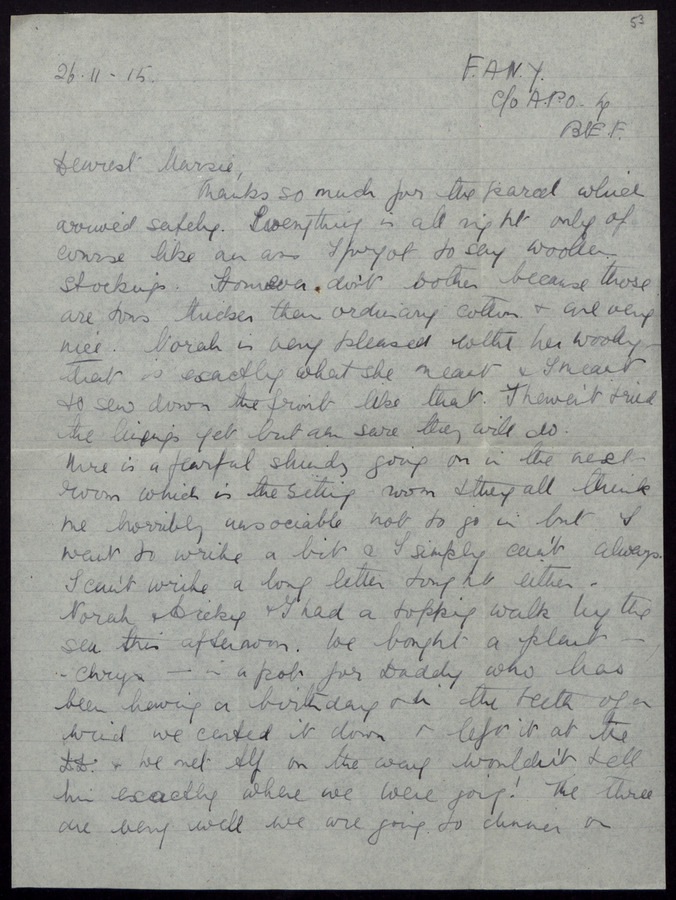 53
26-11-15.
F.A.N.Y.
c/o A.P.O. 4
B.E.F.
Dearest Marsie,
Thanks so much for the parcel which
arrived safely. Everything is all right only of
course like an ass I forgot to say woollen
stockings. However don't bother because those
are tons thicker than ordinary cotton & are very
nice. Norah is very pleased with her wooly
that is exactly what she meant & I meant
to sew down the front like that. I haven't tried
the linings yet but am sure they will do.
There is a fearful shindy going on in the next
room which is the sitting room & they all think
me horribly unsociable not to go in but I
want to write a bit & I simply can't always.
I can't write a long letter tonight either.
Norah & Dicky & I had a topping walk by the
sea this afternoon. We bought a plant —
- chrys — in a pot for Daddy who has
been having a birthday & in the teeth of a
wind we carted it down & left it at the
& we met Alf on the way wouldn't tell
him exactly where we were going! The three
are very well we are going to dinner on